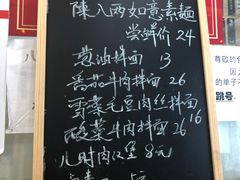 陳入两如意素麵
尝鮮价 24
葱油拌面 13
番茄牛肉拌面 26
雪菜毛豆肉丝拌面 16
酸菜牛肉拌面 26
儿时肉汉堡 8元
尊敬的
因
的单子
跳号